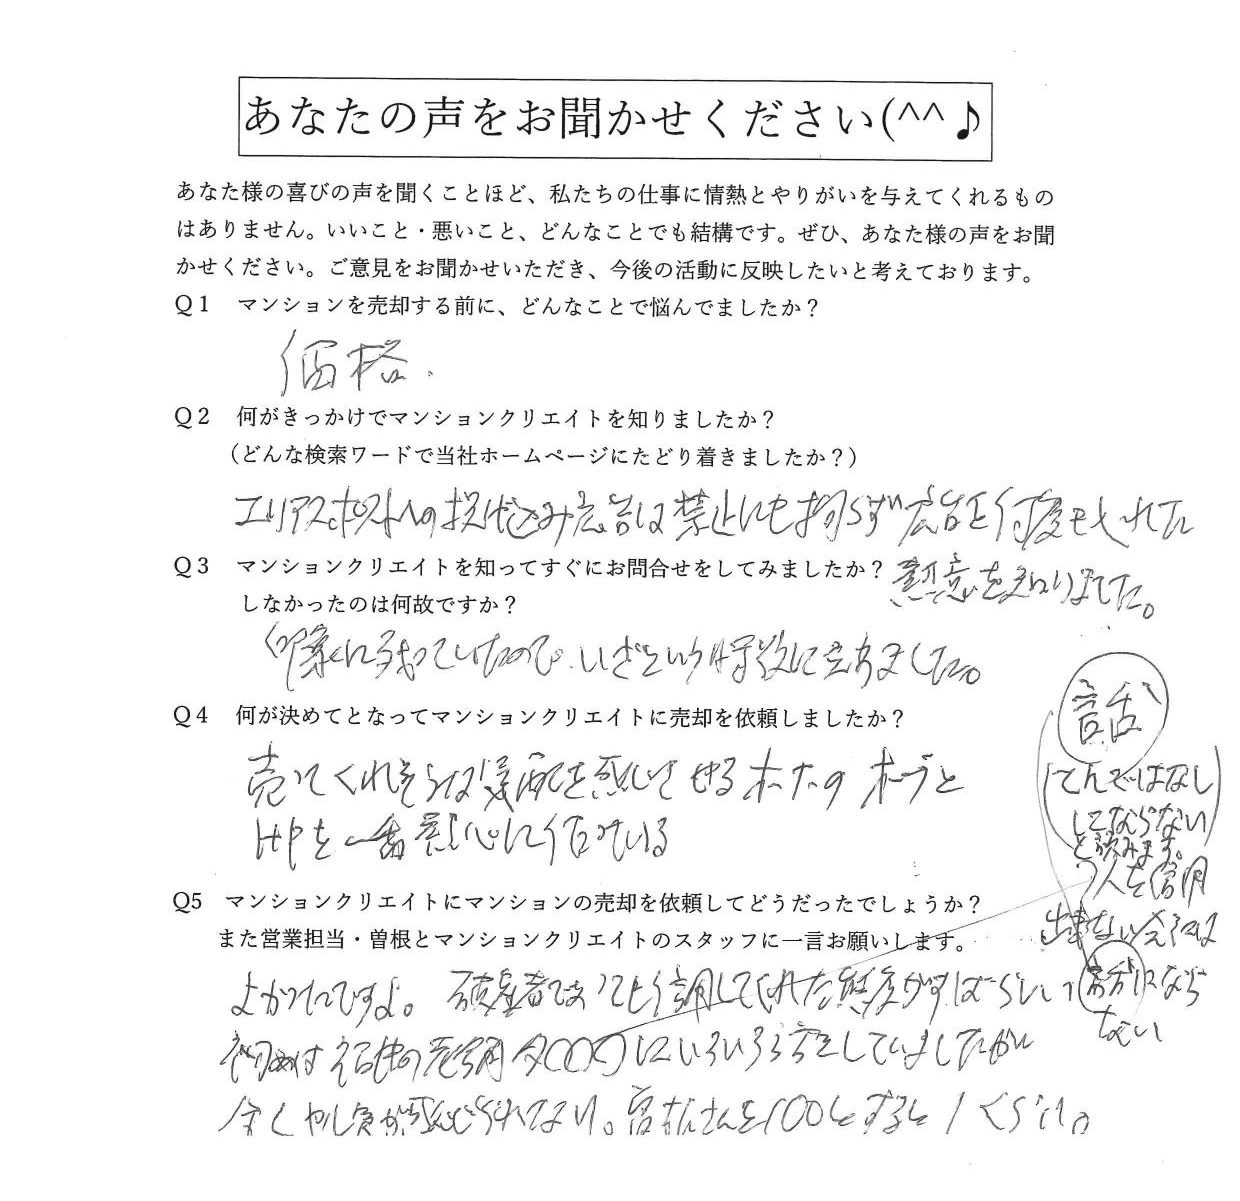 あなたの声をお聞かせください(^^♪
あなた様の喜びの声を聞くことほど、私たちの仕事に情熱とやりがいを与えてくれるもの
はありません。いいこと・悪いこと、どんなことでも結構です。ぜひ、あなた様の声をお聞
かせください。ご意見をお聞かせいただき、今後の活動に反映したいと考えております。
Q1 マンションを売却する前に、どんなことで悩んでましたか？
価格.
Q2 何がきっかけでマンションクリエイトを知りましたか？
（どんな検索ワードで当社ホームページにたどり着きましたか？）
への投げ込み広告は禁止にも拘らず広告を何度もくれた
Q3 マンションクリエイトを知ってすぐにお問合せをしてみましたか？
熱意を知りました。
しなかったのは何故ですか？
印象に残っていたので、いざという時数に
Q4 何が決めてとなってマンションクリエイトに売却を依頼しましたか？
売ってくれそうな気配を感じさせる
HPを一番
Q5 マンションクリエイトにマンションの売却を依頼してどうだったでしょうか？
また営業担当・曽根とマンションクリエイトのスタッフに一言お願いします。
よかったですよ。 であっても信用してくれた態度がすばらしい
初めは 〇〇〇にいろいろ していましたが
全くやる気が感じられない。曽根さんを100とすると1くらい。
言舌
(てんではなし
してならない)
と読みます。
人を信用
出来ない
話になら
ない